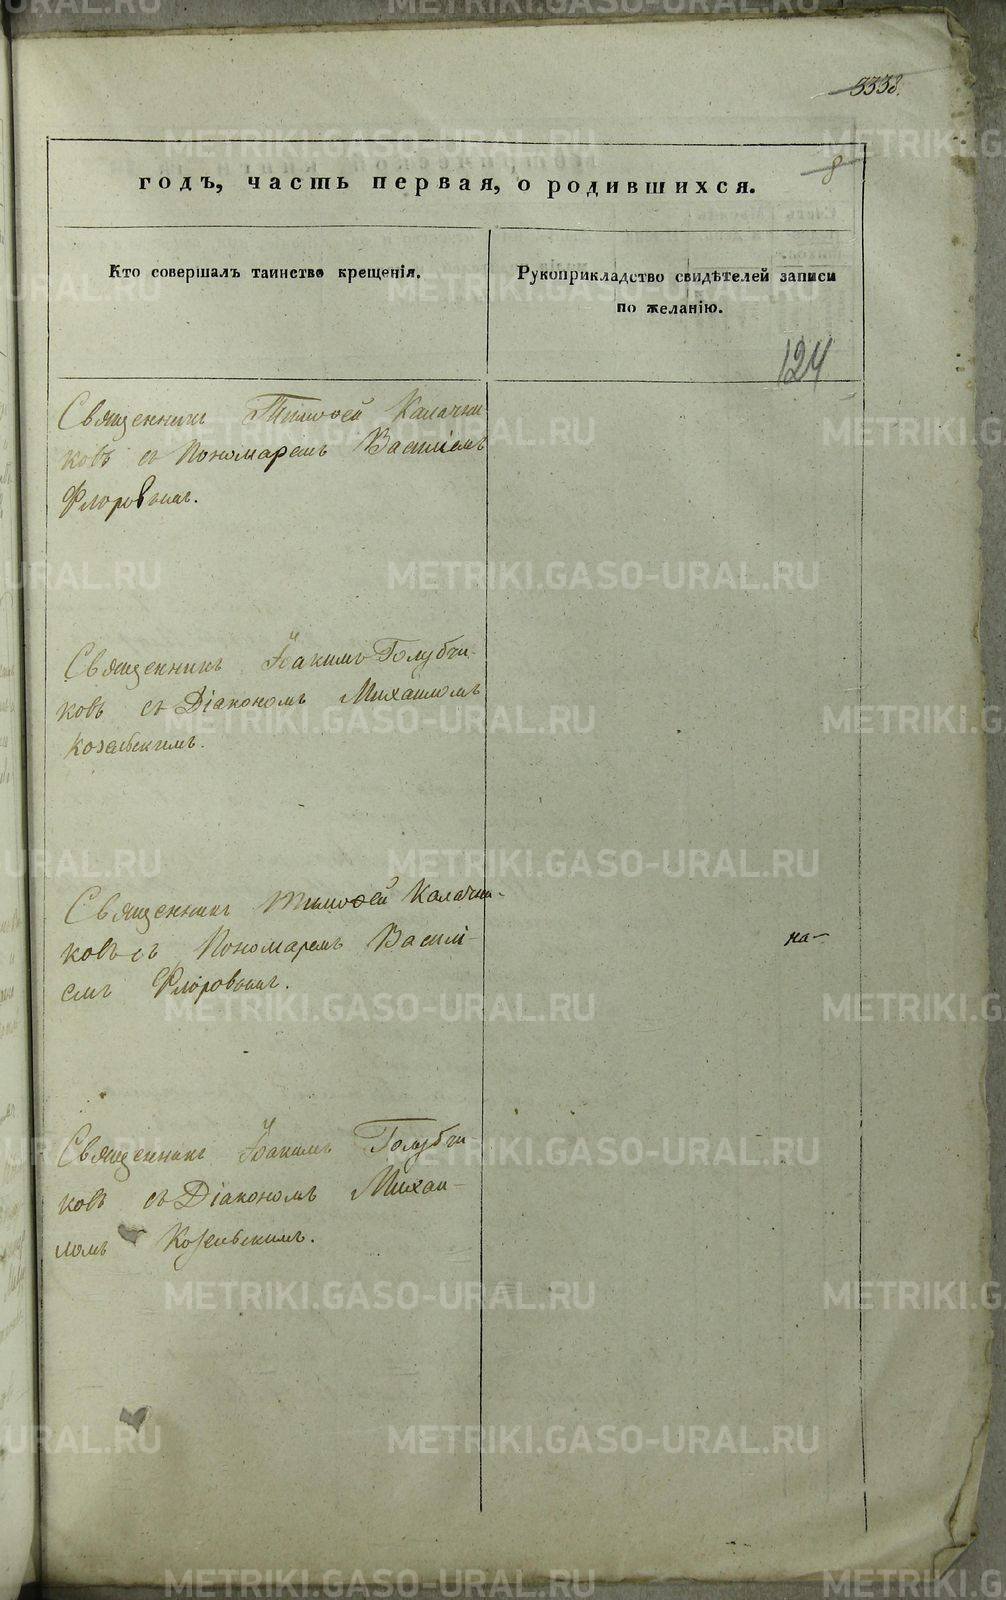 3338.
8
годъ, часть первая, о родившихся.
Кто совершалъ таинство крещенія.
Рукоприкладство свидѣтелей записи
по желанію.
124
Священникъ Тимоѳей Калачни
ковъ съ Пономаремъ Василіемъ
Флоровым.
Священникъ Іоакимъ Голубчи-
ковъ съ Діакономъ Михаиломъ
Козельскимъ.
Священникъ Тимоѳей Калачни-
ковъ съ Пономаремъ Василі-
емъ Флоровым.
на-
Священникъ Іоакимъ Голубчи
ковъ съ Діакономъ Михаи-
ломъ Козельскимъ.
METRIKI.GASO-URAL.RU